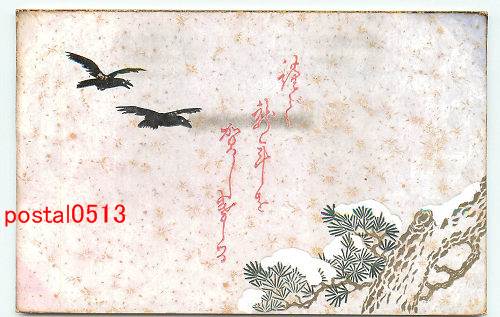 謹んで
新年を
賀し奉る
postal0513